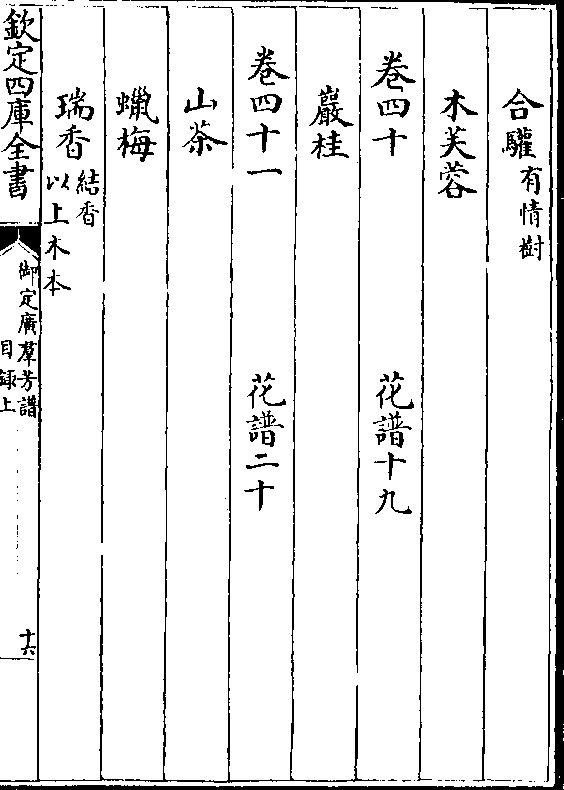 合驩有情樹
木芙蓉
卷四十 花譜十九
巖桂
卷四十一 花譜二十
山茶
蠟梅
瑞香結香
以上木本
欽定四庫全書
御定廣羣芳譜
目録上
十六